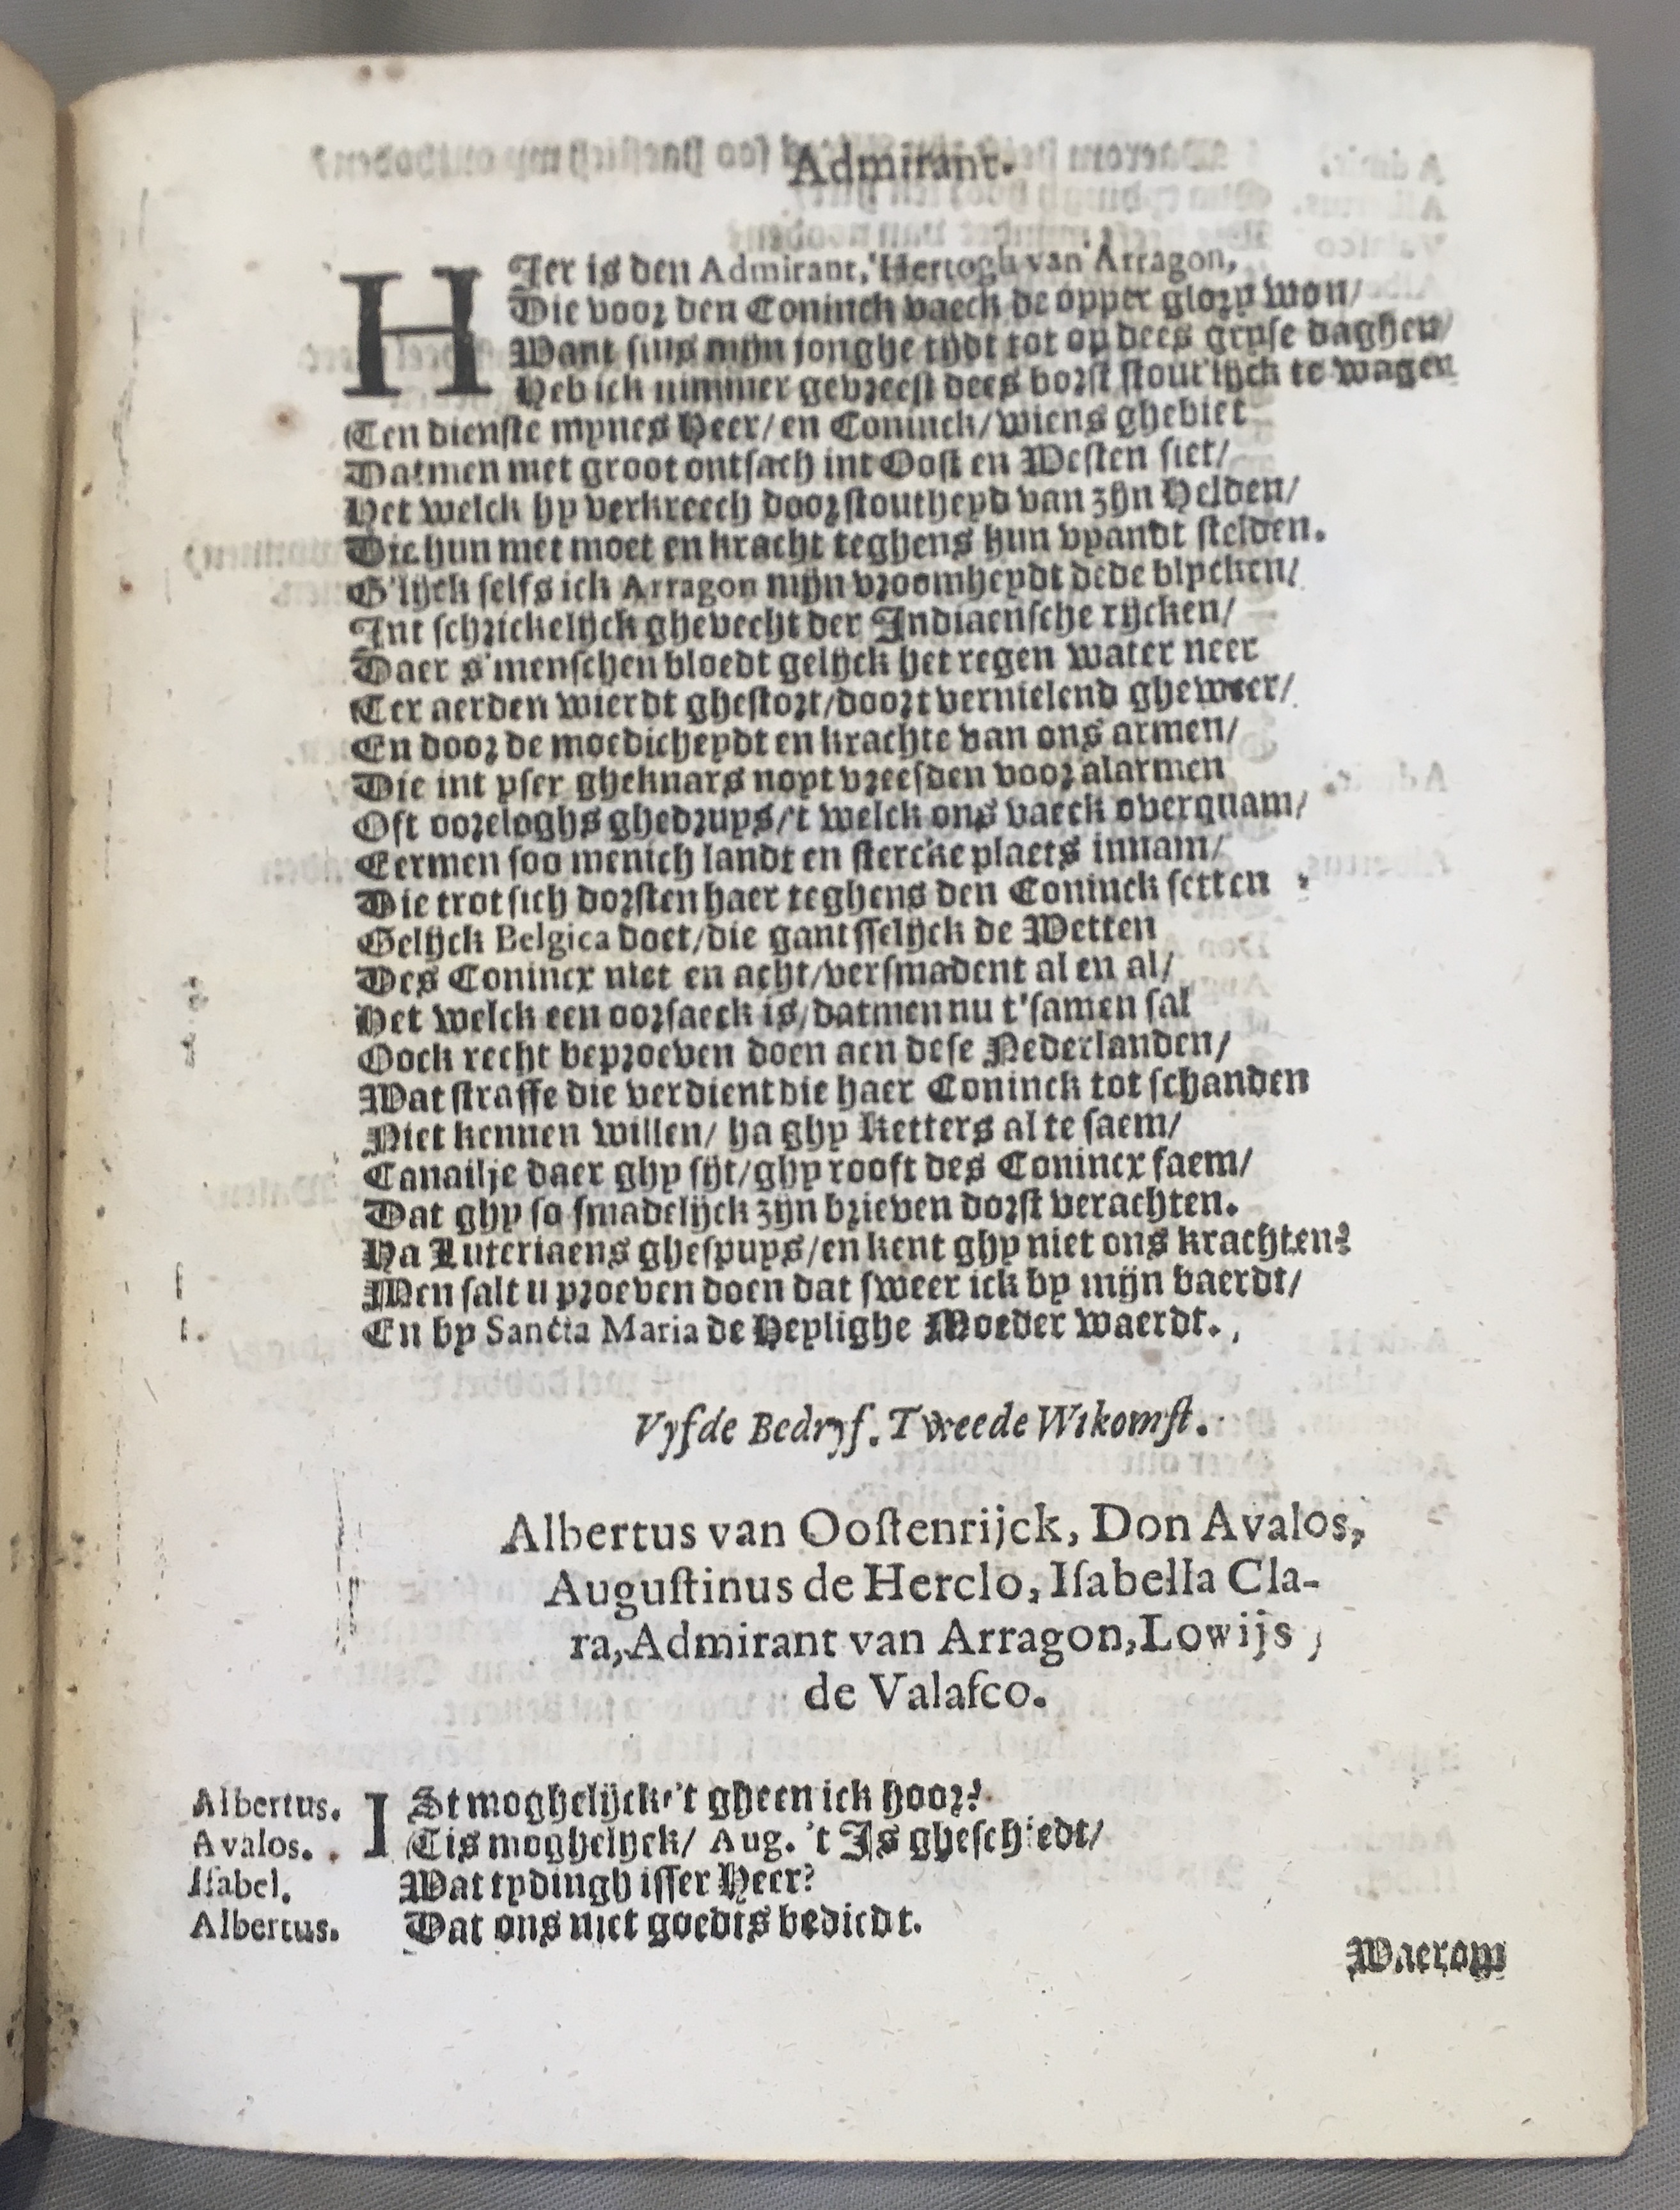 Admirant.
HIer is den Admirant, Hertogh van Arragon,
Die voor den Coninck vaeck de opper glory won/
Want sins mijn jonghe tijdt tot op dees gryse daghen/
Heb ick nimmer gevreest dees borst stout'lijck te wagen
Ten dienste mynes Heer/ en Coninck/ wiens ghebiet
Datmen met groot ontsach int Oost en Westen siet/
Het welck hy verkreech door stoutheyd van zijn Helden/
Die hun met moet en kracht teghens hun vyandt stelden.
G'lijck selfs ick Arragon mijn vroomheydt dede blycken/
Int schrickelijck ghevecht der Indiaensche rijcken/
Daer s'menschen bloedt gelijck het regen water neer
Ter aerden wierdt ghestort/ doort vernielend gheweer/
En door de moedicheydt en krachte van ons armen/
Die int yser gheknars noyt vreesden voor alarmen
Oft oorloghs ghedruys/ t welck ons vaeck overquam/
Eermen soo menich landt en stercke plaets innam/
Die trotsich dorsten haer teghens den Coninck setten
Gelijck Belgica doet/ die gantsselijck de Wetten
Des Conincx niet en acht/ versmadent al en al/
Het welck een oorsaeck is/ datmen nu t'samen sal
Oock recht beproeven doen aen dese Nederlanden/
Wat straffe die verdient die haer Coninck tot schanden
Niet kennen willen/ ha ghy Ketters al te saem/
Canailje daer ghy sijt/ ghy rooft des Conincx faem/
Dat ghy so smadelijck zijn brieven dorst verachten.
Ha Luteriaens ghespuys/ en kent ghy niet ons krachten?
Men salt u proeven doen dat sweer ick by mijn baerdt/
En by Sancta Maria de Heylighe Moeder waerdt.
Vyfde Bedryf. Tweede Wtkomst.
Albertus van Oostenrijck, Don Avalos,
Augustinus de Herclo, Isabella Cla-
ra, Admirant van Arragon, Lowijs
de Valasco.
Albertus. ISt moghelijck 't gheen ick hoor?
Avalos. Tis moghelyck/ Aug. 't Is gheschiedt/
Isabel. Wat tydingh isser Heer?
Albertus. Dat ons niet goedts bediedt.
Waerom